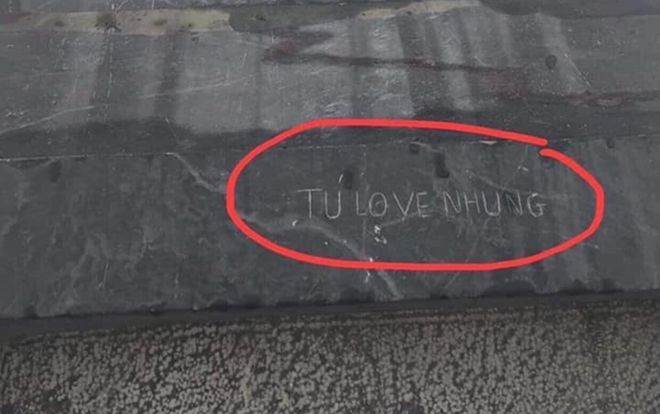 TU LOVE NHUNG